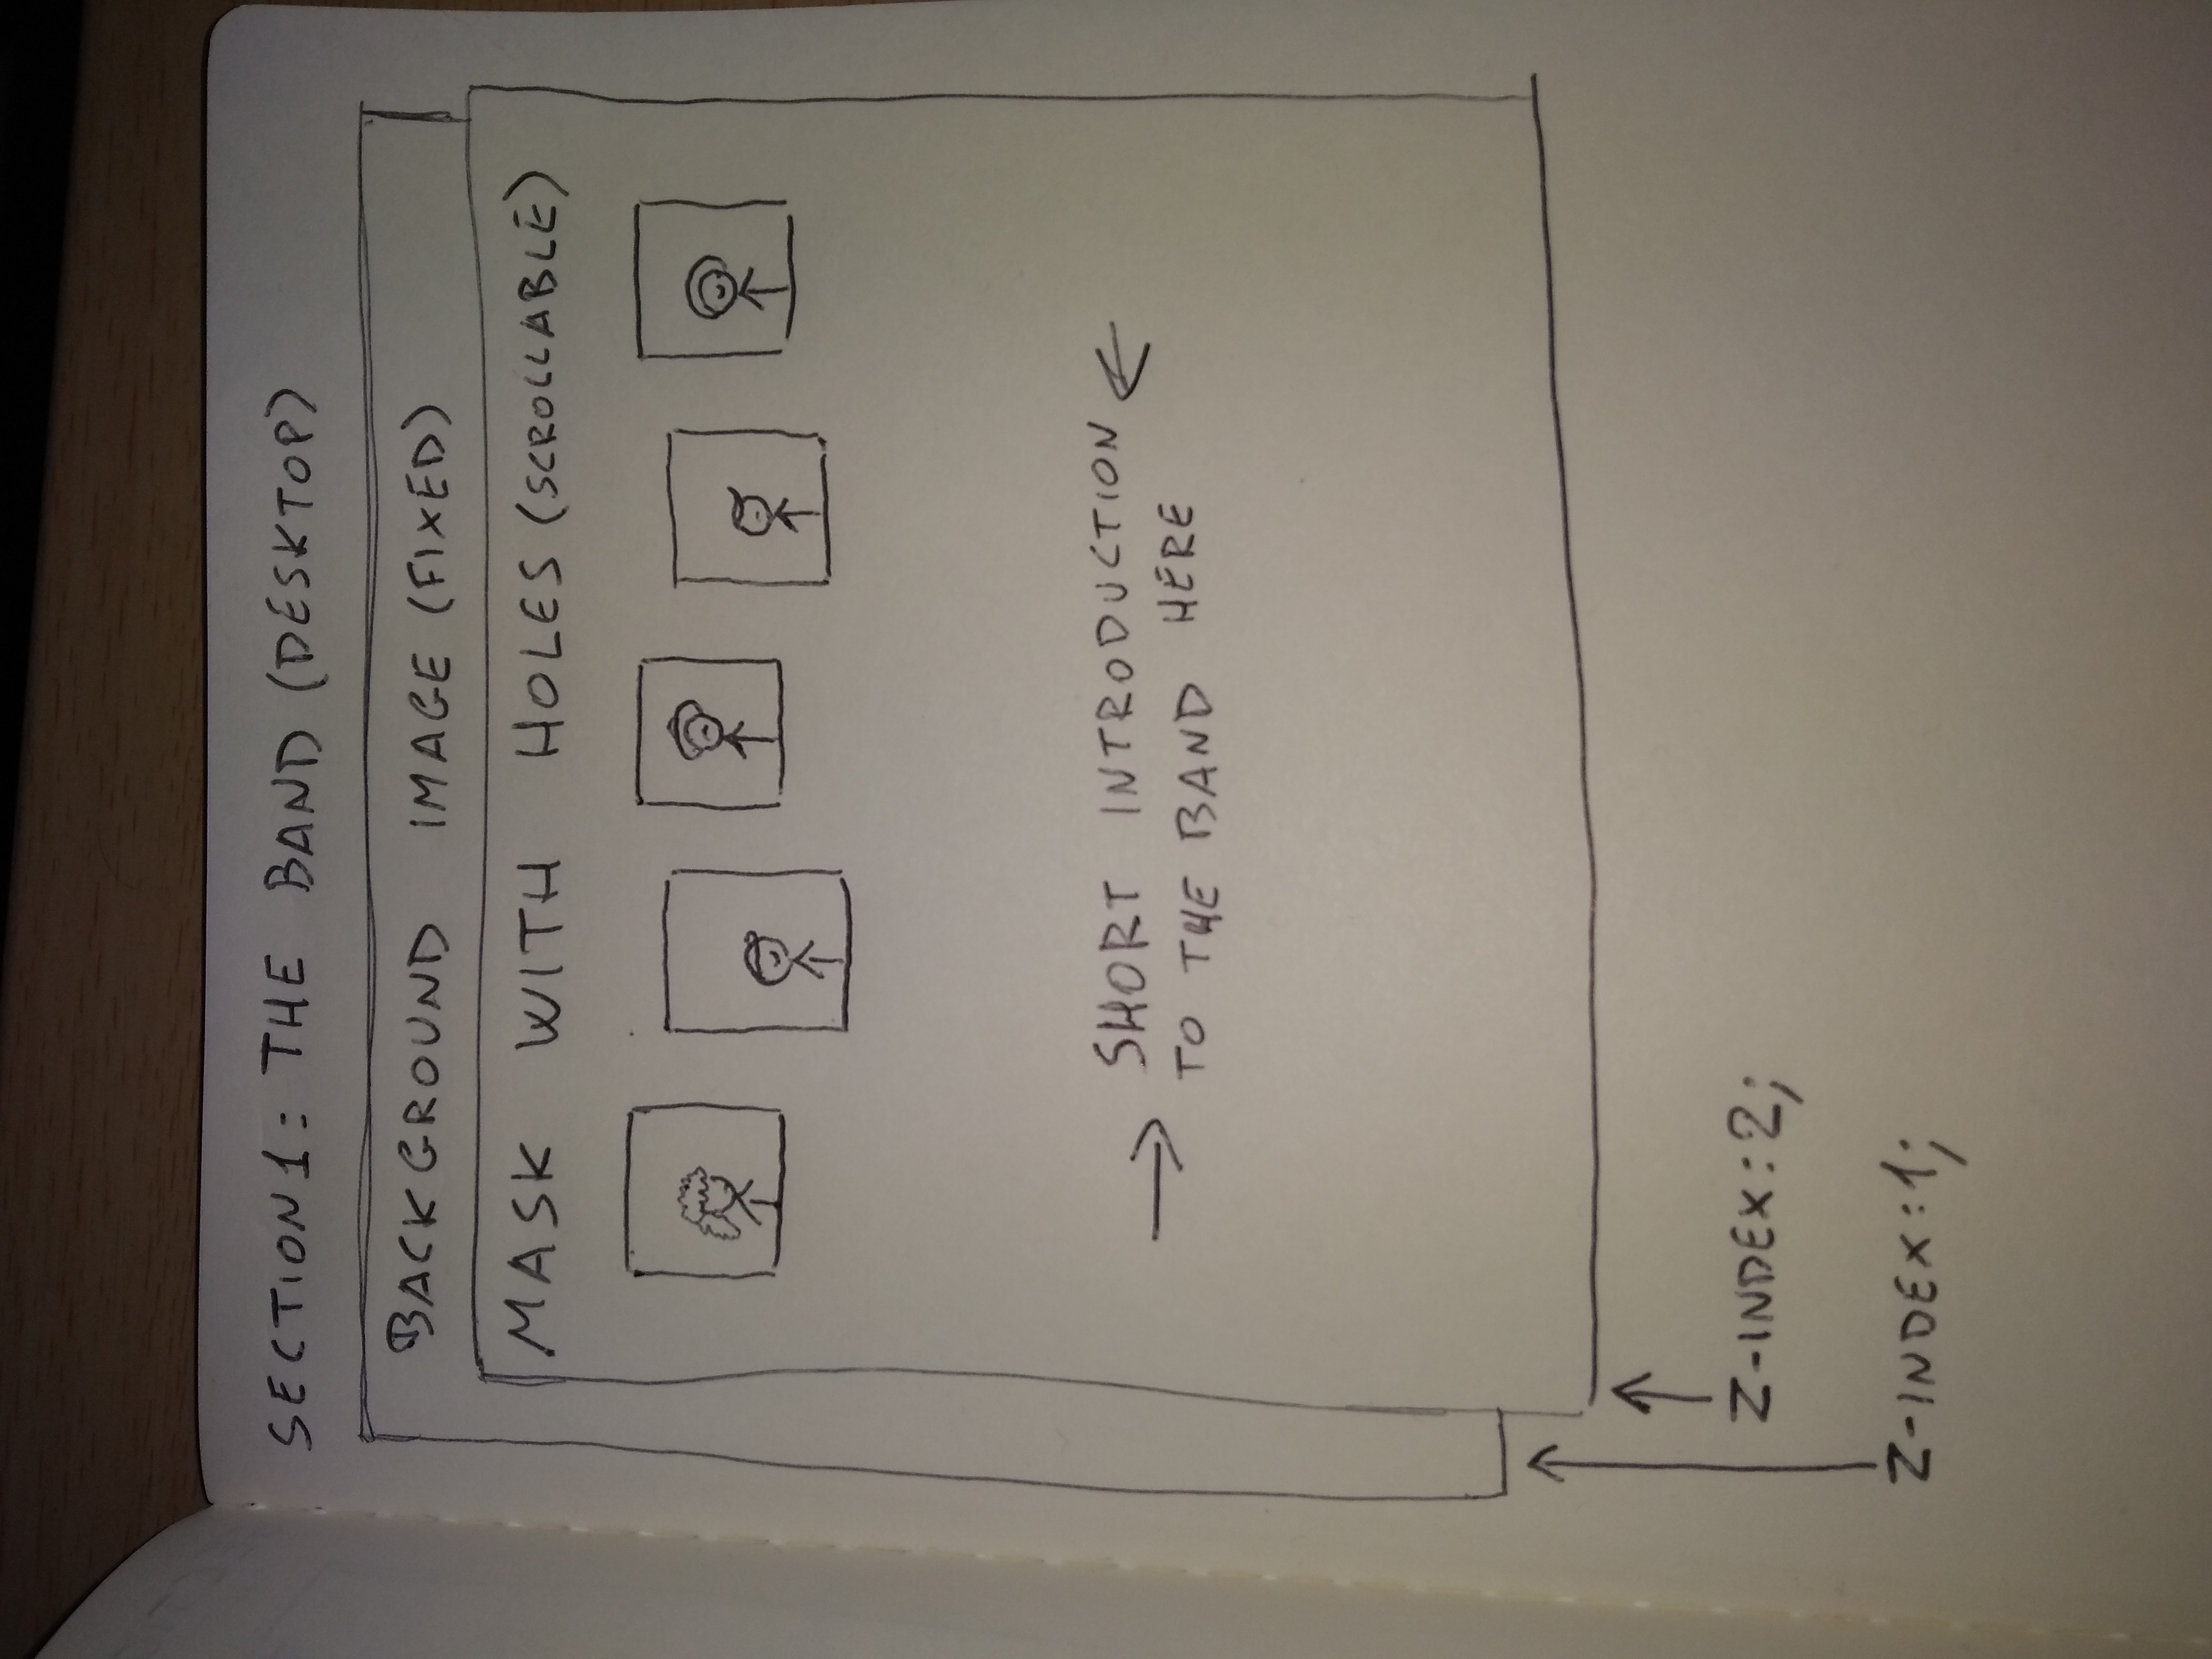 SECTION1: THE BAND (DESKTOP)
BACKGROUND IMAGE (FIXED)
MASK WITH HOLES (SCROLLABLE)
SHORT INTRODUCTION
TO THE BAND HERE
Z-INDEX:2;
Z-INDEX:1;